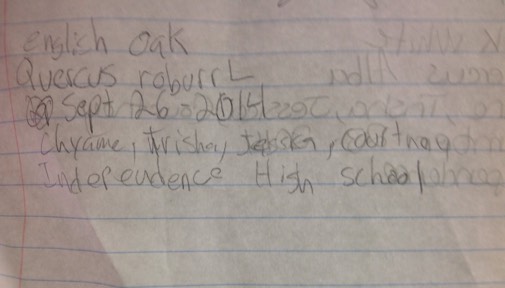 english oak
Quercus roburr L
Sept 26 2014
Chyanne, Trisha, Courtnay
Independence High school